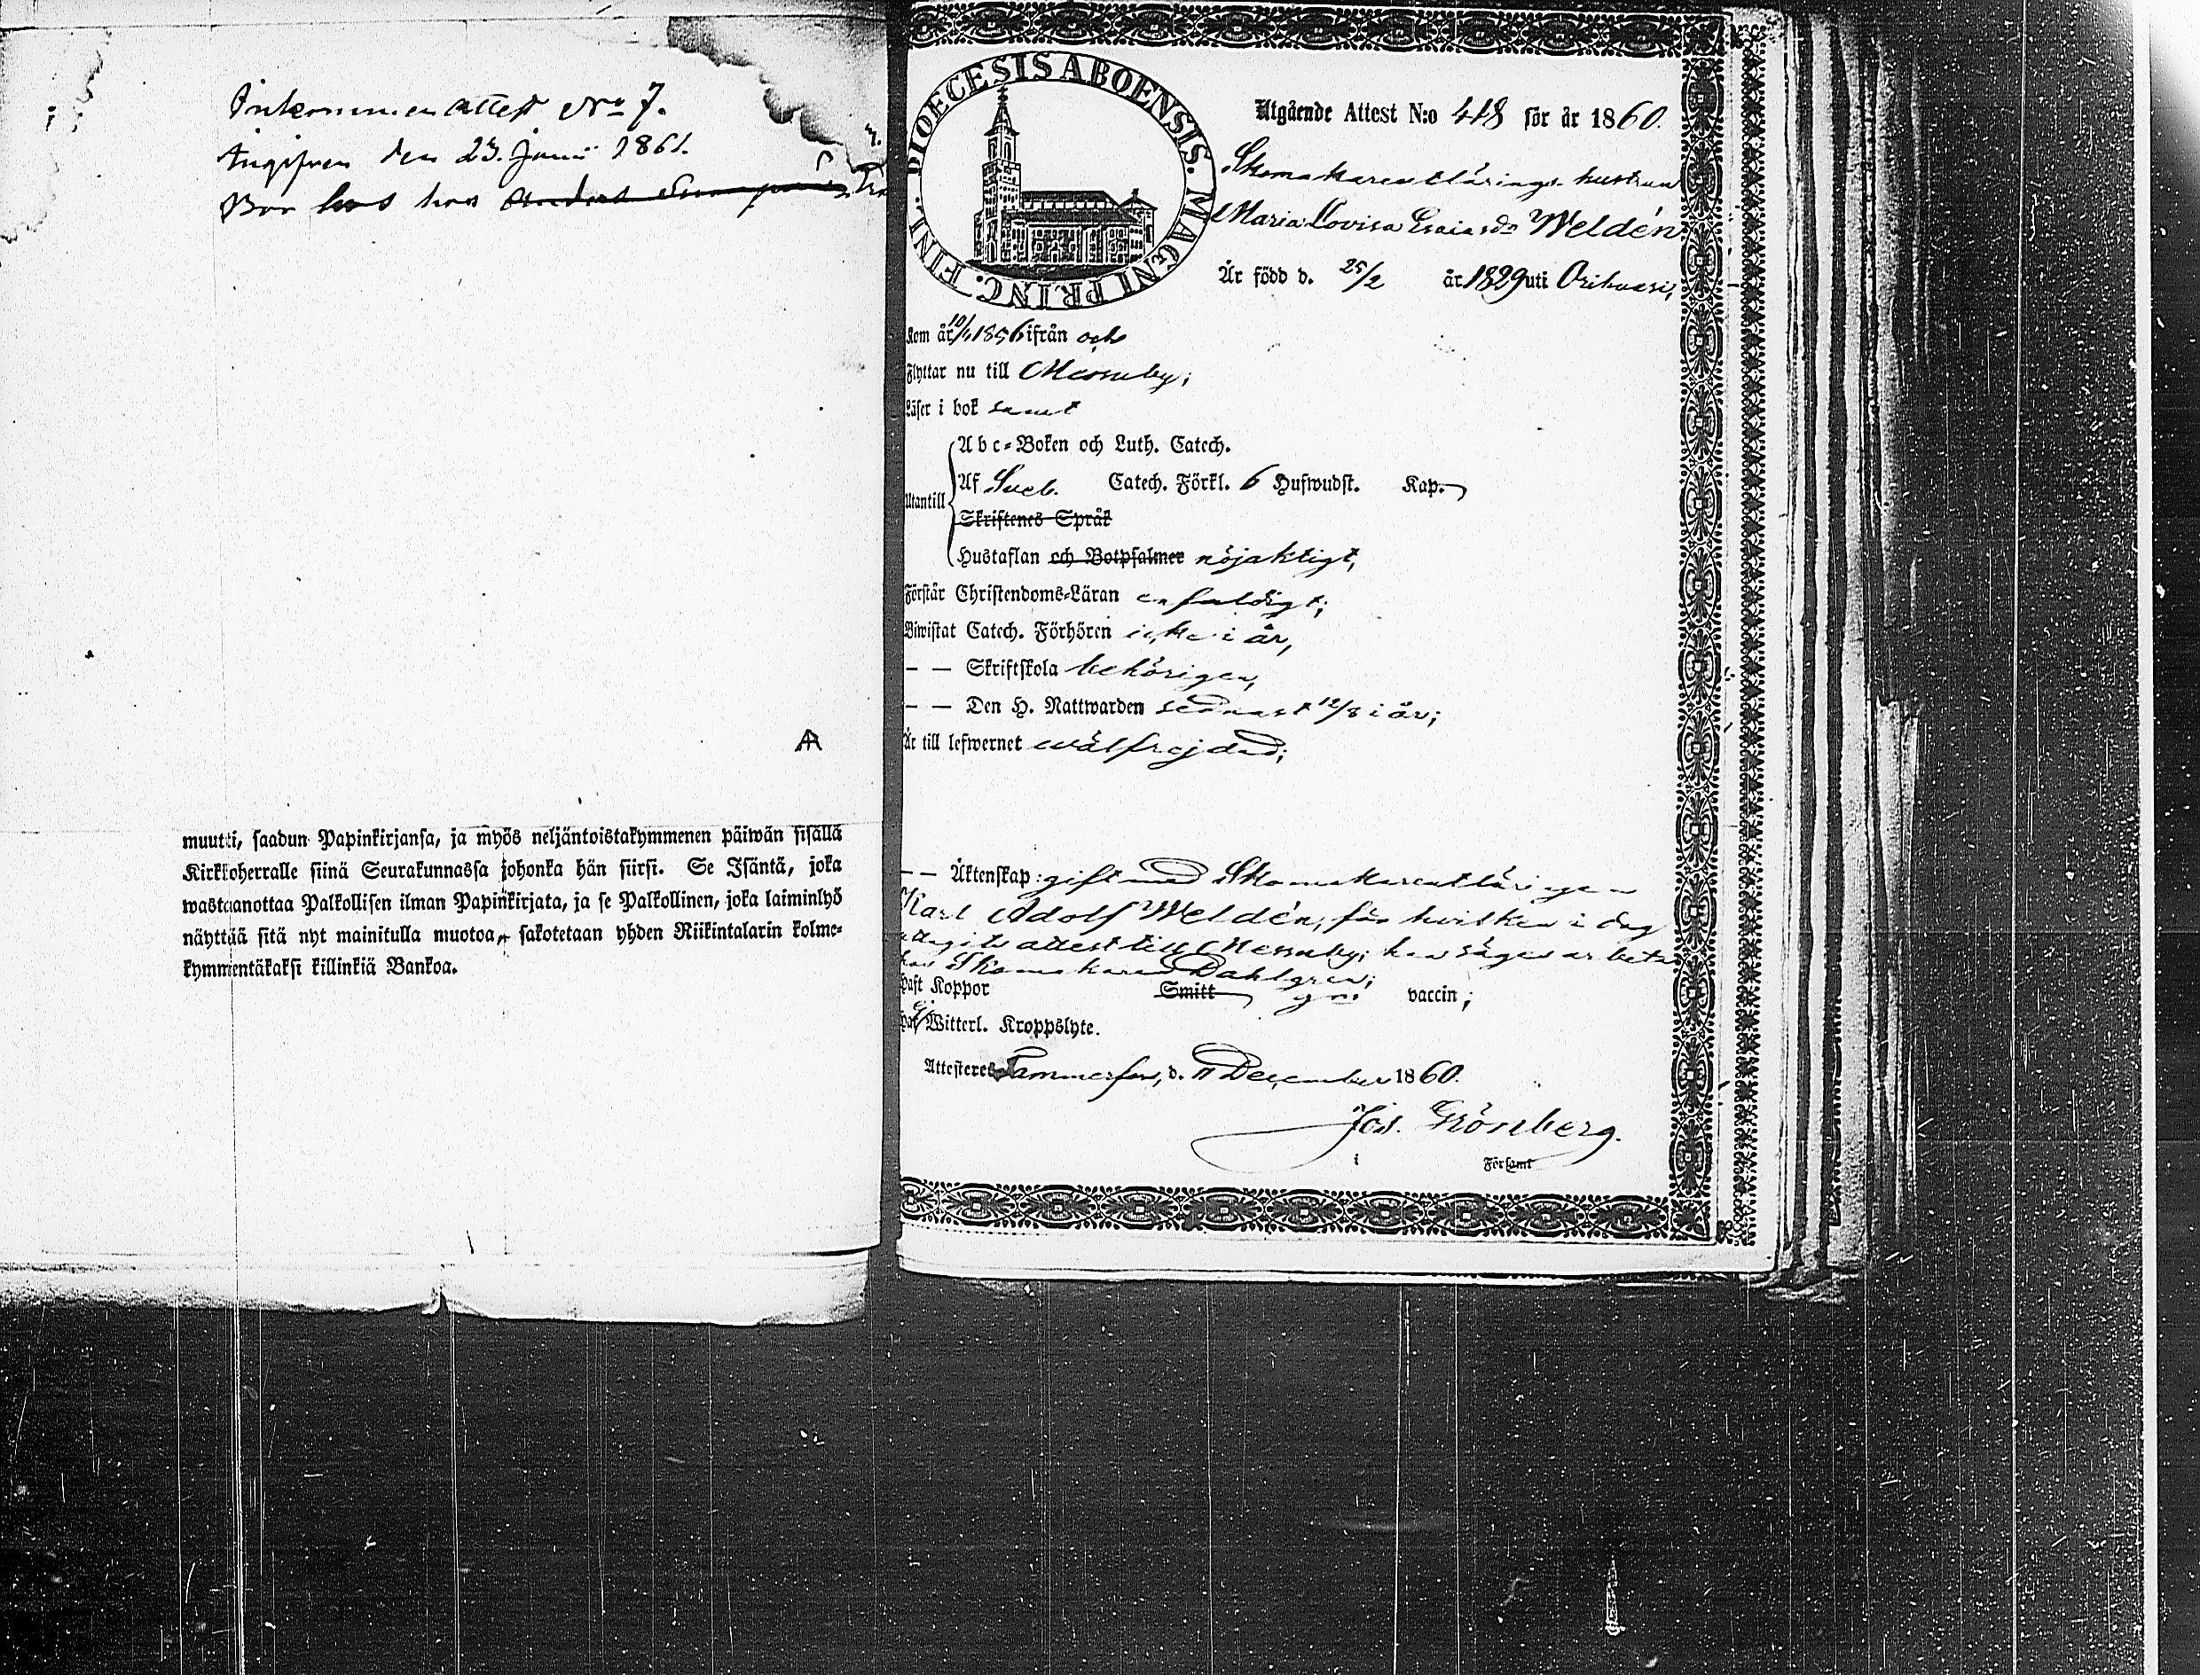 Inkommen attest No 7.
Angifven den 23. Juni 1861.
Bor hos hos
muutti, saadun Papinkirjansa, ja myös neljäntoistakymmenen päiwän sisällä
Kirkkoherralle siinä Seurakunnassa johonka hän siirsi. Se Isäntä, joka
wastaanottaa Palkollisen ilman Papinkirjata, ja se Palkollinen, joka laiminlyö
näyttää sitä nyt mainitulla muotoa, sakotetaan yhden Riikintalarin kolme-
kymmentäkaksi killinkiä Bankoa.
DIOECESIS ABOENSIS. MAGNI PRINC. FINL.
Utgående Attest N:o 418 för år 1860.
Skomakareutlärings-hustrun
Maria Lovisa Esaiasdr Weldén
Är född d. 25/2 år 1829 uti Orihvesi,
Kom år 10/4 1856 ifrån och
Flyttar nu till Messuby;
Läser i bok samt
Utantill
Abc-Boken och Luth. Catech.
Af Sveb. Catech. Förkl. 6 Hufwudst. Kap.
Skriftenes Språk
Hustaflan och Botpsalmer nöjaktigt,
Förstår Christendoms-Läran enfaldigt;
Biwistat Catech. Förhören icke i år,
— — Skriftskola behörigen,
— — Den H. Nattwarden sednast 12/8 i år;
Är till lefwernet wälfrejdad;
— — Äktenskap: gift med Skomakareutläringen
Karl Adolf Weldén, för hvilken i dag
utgifts attest till Messuby; han säges arbeta
hos Skomakaren Dahlgren;
Haft Koppor Smitt vaccin;
Har ej Witterl. Kroppslyte.
Attesteres Tammerfors, d. 11 December 1860.
Jos. Grönberg.
i Församl